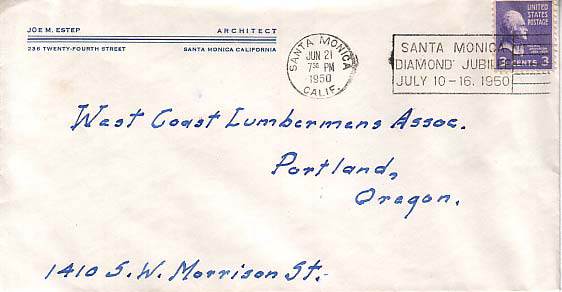 JOE M. ESTEP ARCHITECT
236 TWENTY-FOURTH STREET SANTA MONICA CALIFORNIA
SANTA MONICA
JUN 21
7 30 PM
1950
CALIF.
SANTA MONICA
DIAMOND JUBILEE
JULY 10-16. 1950
UNITED
STATES
POSTAGE
3 CENTS 3
West Coast Lumbermens Assoc.
Portland,
Oregon.
1410 S.W. Morrison St.